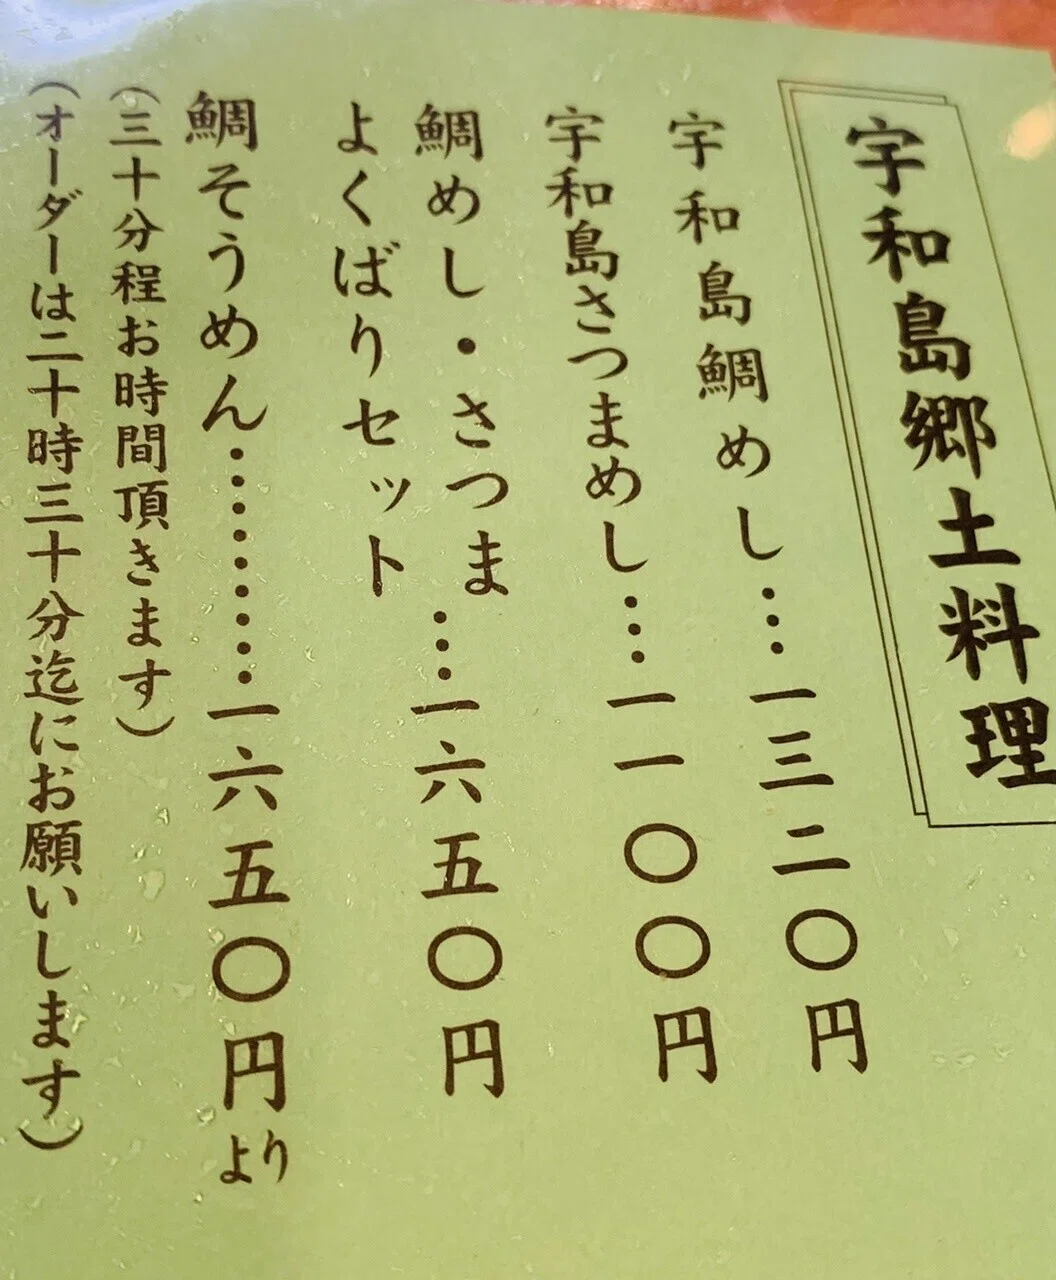 宇和島郷土料理
宇和島鯛めし…一三二〇円
宇和島さつまめし…一一〇〇円
鯛めし・さつま
よくばりセット…一六五〇円
鯛そうめん………一六五〇円より
（三十分程お時間頂きます）
（オーダーは二十時三十分迄にお願いします）